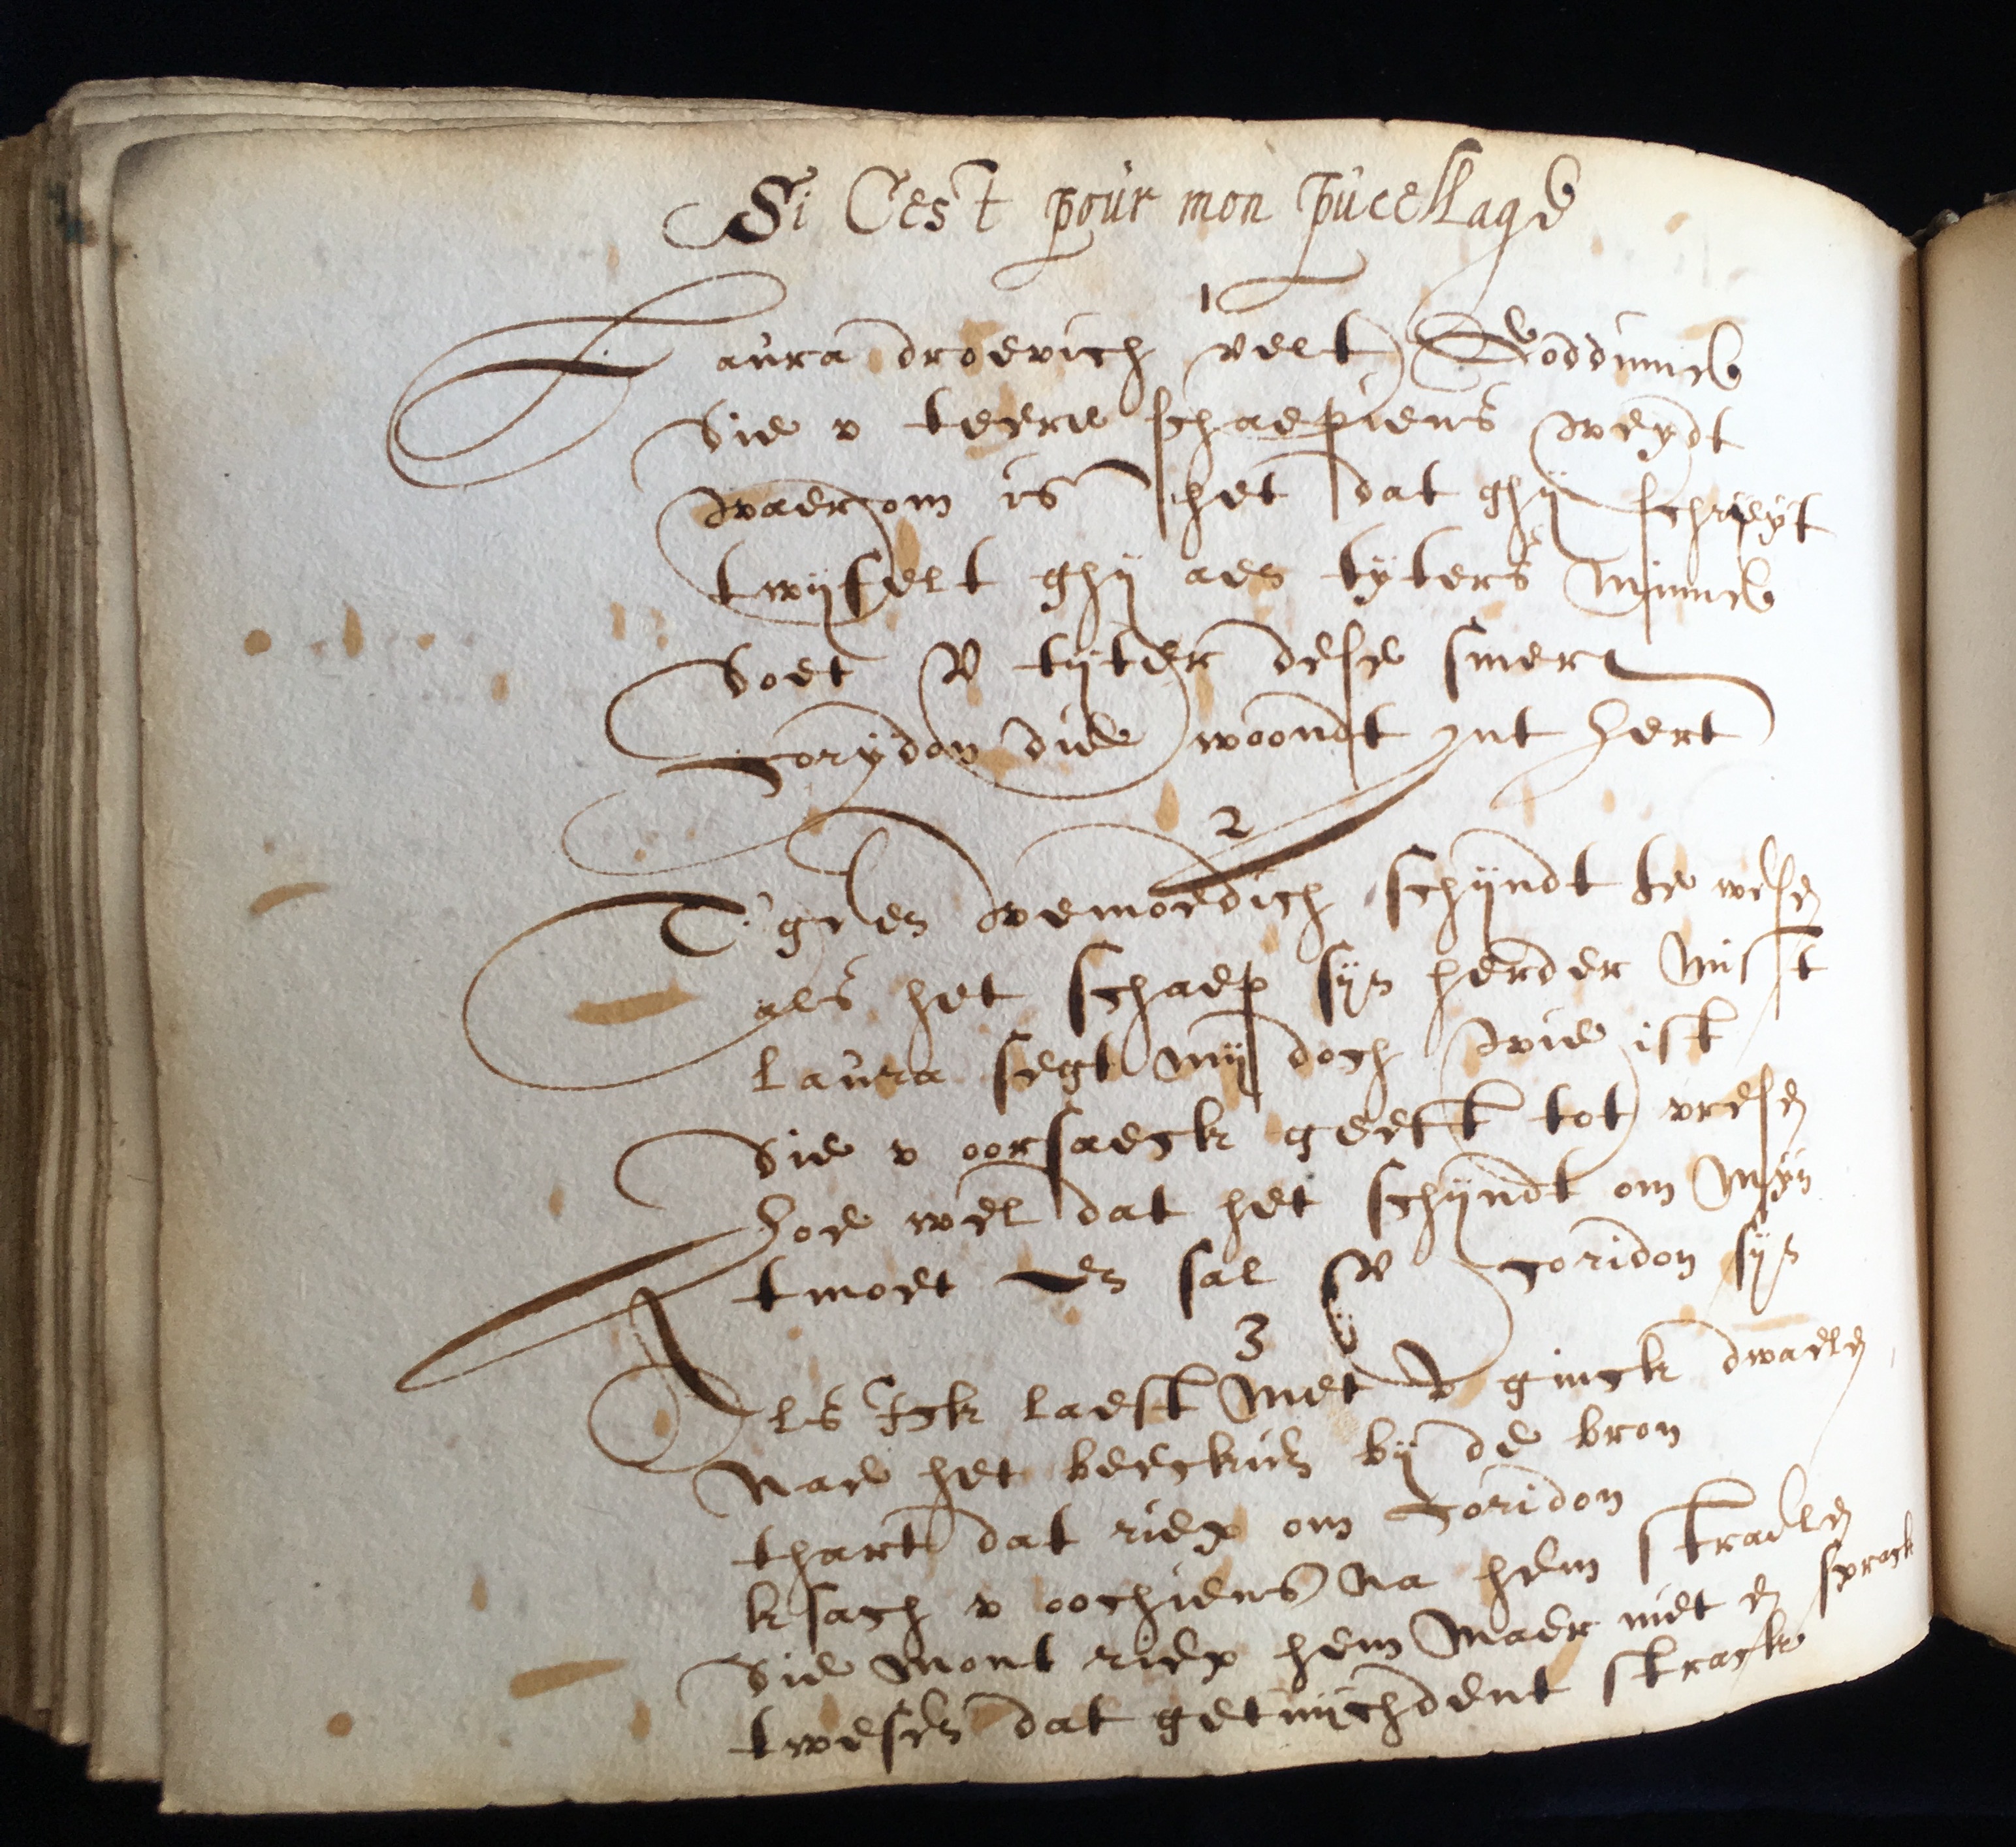 Si C'est pour mon pucellage
1
Laura droevich velt Goddinne
Die v teere schaepiens weydt
waerom is het dat ghij schreyt
twijfelt ghij aen tyters Minne
Doet V tyter dese smert
Corydon die woondt int hert
2
T'geen weemoedich schijndt te wesen
als het schaep sijn herder Mist
laura segt mij doch wie ist
Die v oorsaeck geeft tot vresen
hoe wel dat het schijndt om Mijn
tmoet en sal V coridon sijn
3
Als Ick laest Met V ginck dwaelen
Nae het beeckien bij de bron
thart dat riep om Coridon
ksach v oochiens Na hem straelen
Die Mont riep hem Maer niet en sprack
twesen dat getuijchdent strack